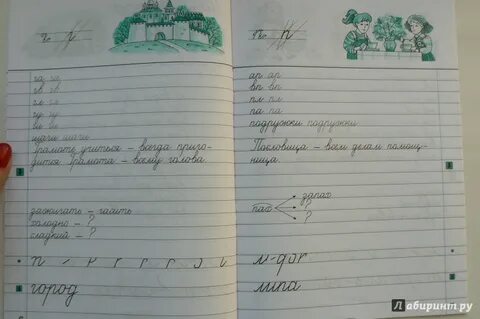 г
га га
гв гв
гл гл
гу гу
ги ги
шаги шаги
Грамоте учиться – всегда приго-
дится. Грамота – всему голова.
зажигать – гасить
холодно – ?
сладкий – ?
город
п п
ар ар
вп вп
пл пл
па па
подружки подружки
Пословица – всем делам помощ-
ница.
запах
пах ?
?
липа
Лабиринт.ру